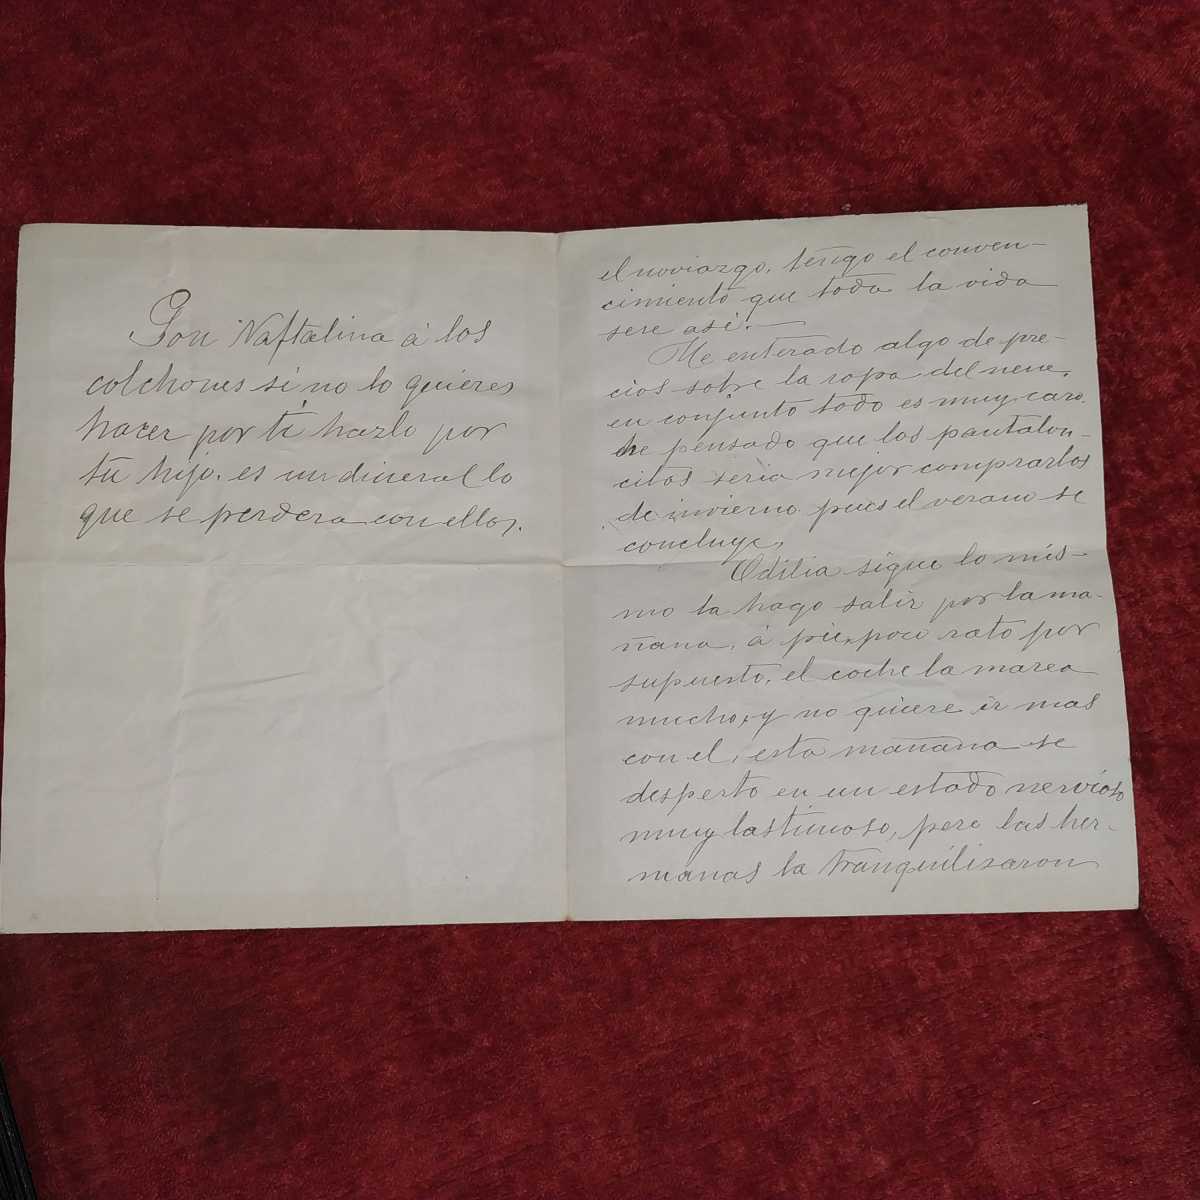 Pon Naftalina á los
colchones si no lo quieres
hacer por tí hazlo por
tu hijo. es un dineral lo
que se perdera con ellos.
el noviazgo. tengo el conven-
cimiento que toda la vida
sere asi.
Me enterado algo de pre-
cios sobre la ropa del nene.
en conjunto todo es muy caro.
he pensado que los pantalon-
citos seria mejor comprarlos
de invierno pues el verano se
concluye,
Odilia sigue lo mis-
mo la hago salir por la ma-
ñana, á pie, poco rato por
supuesto, el coche la marea
mucho, y no quiere ir mas
con el, esta mañana se
desperto en un estado nervioso
muy lastimoso, pero las her-
manas la tranquilisaron